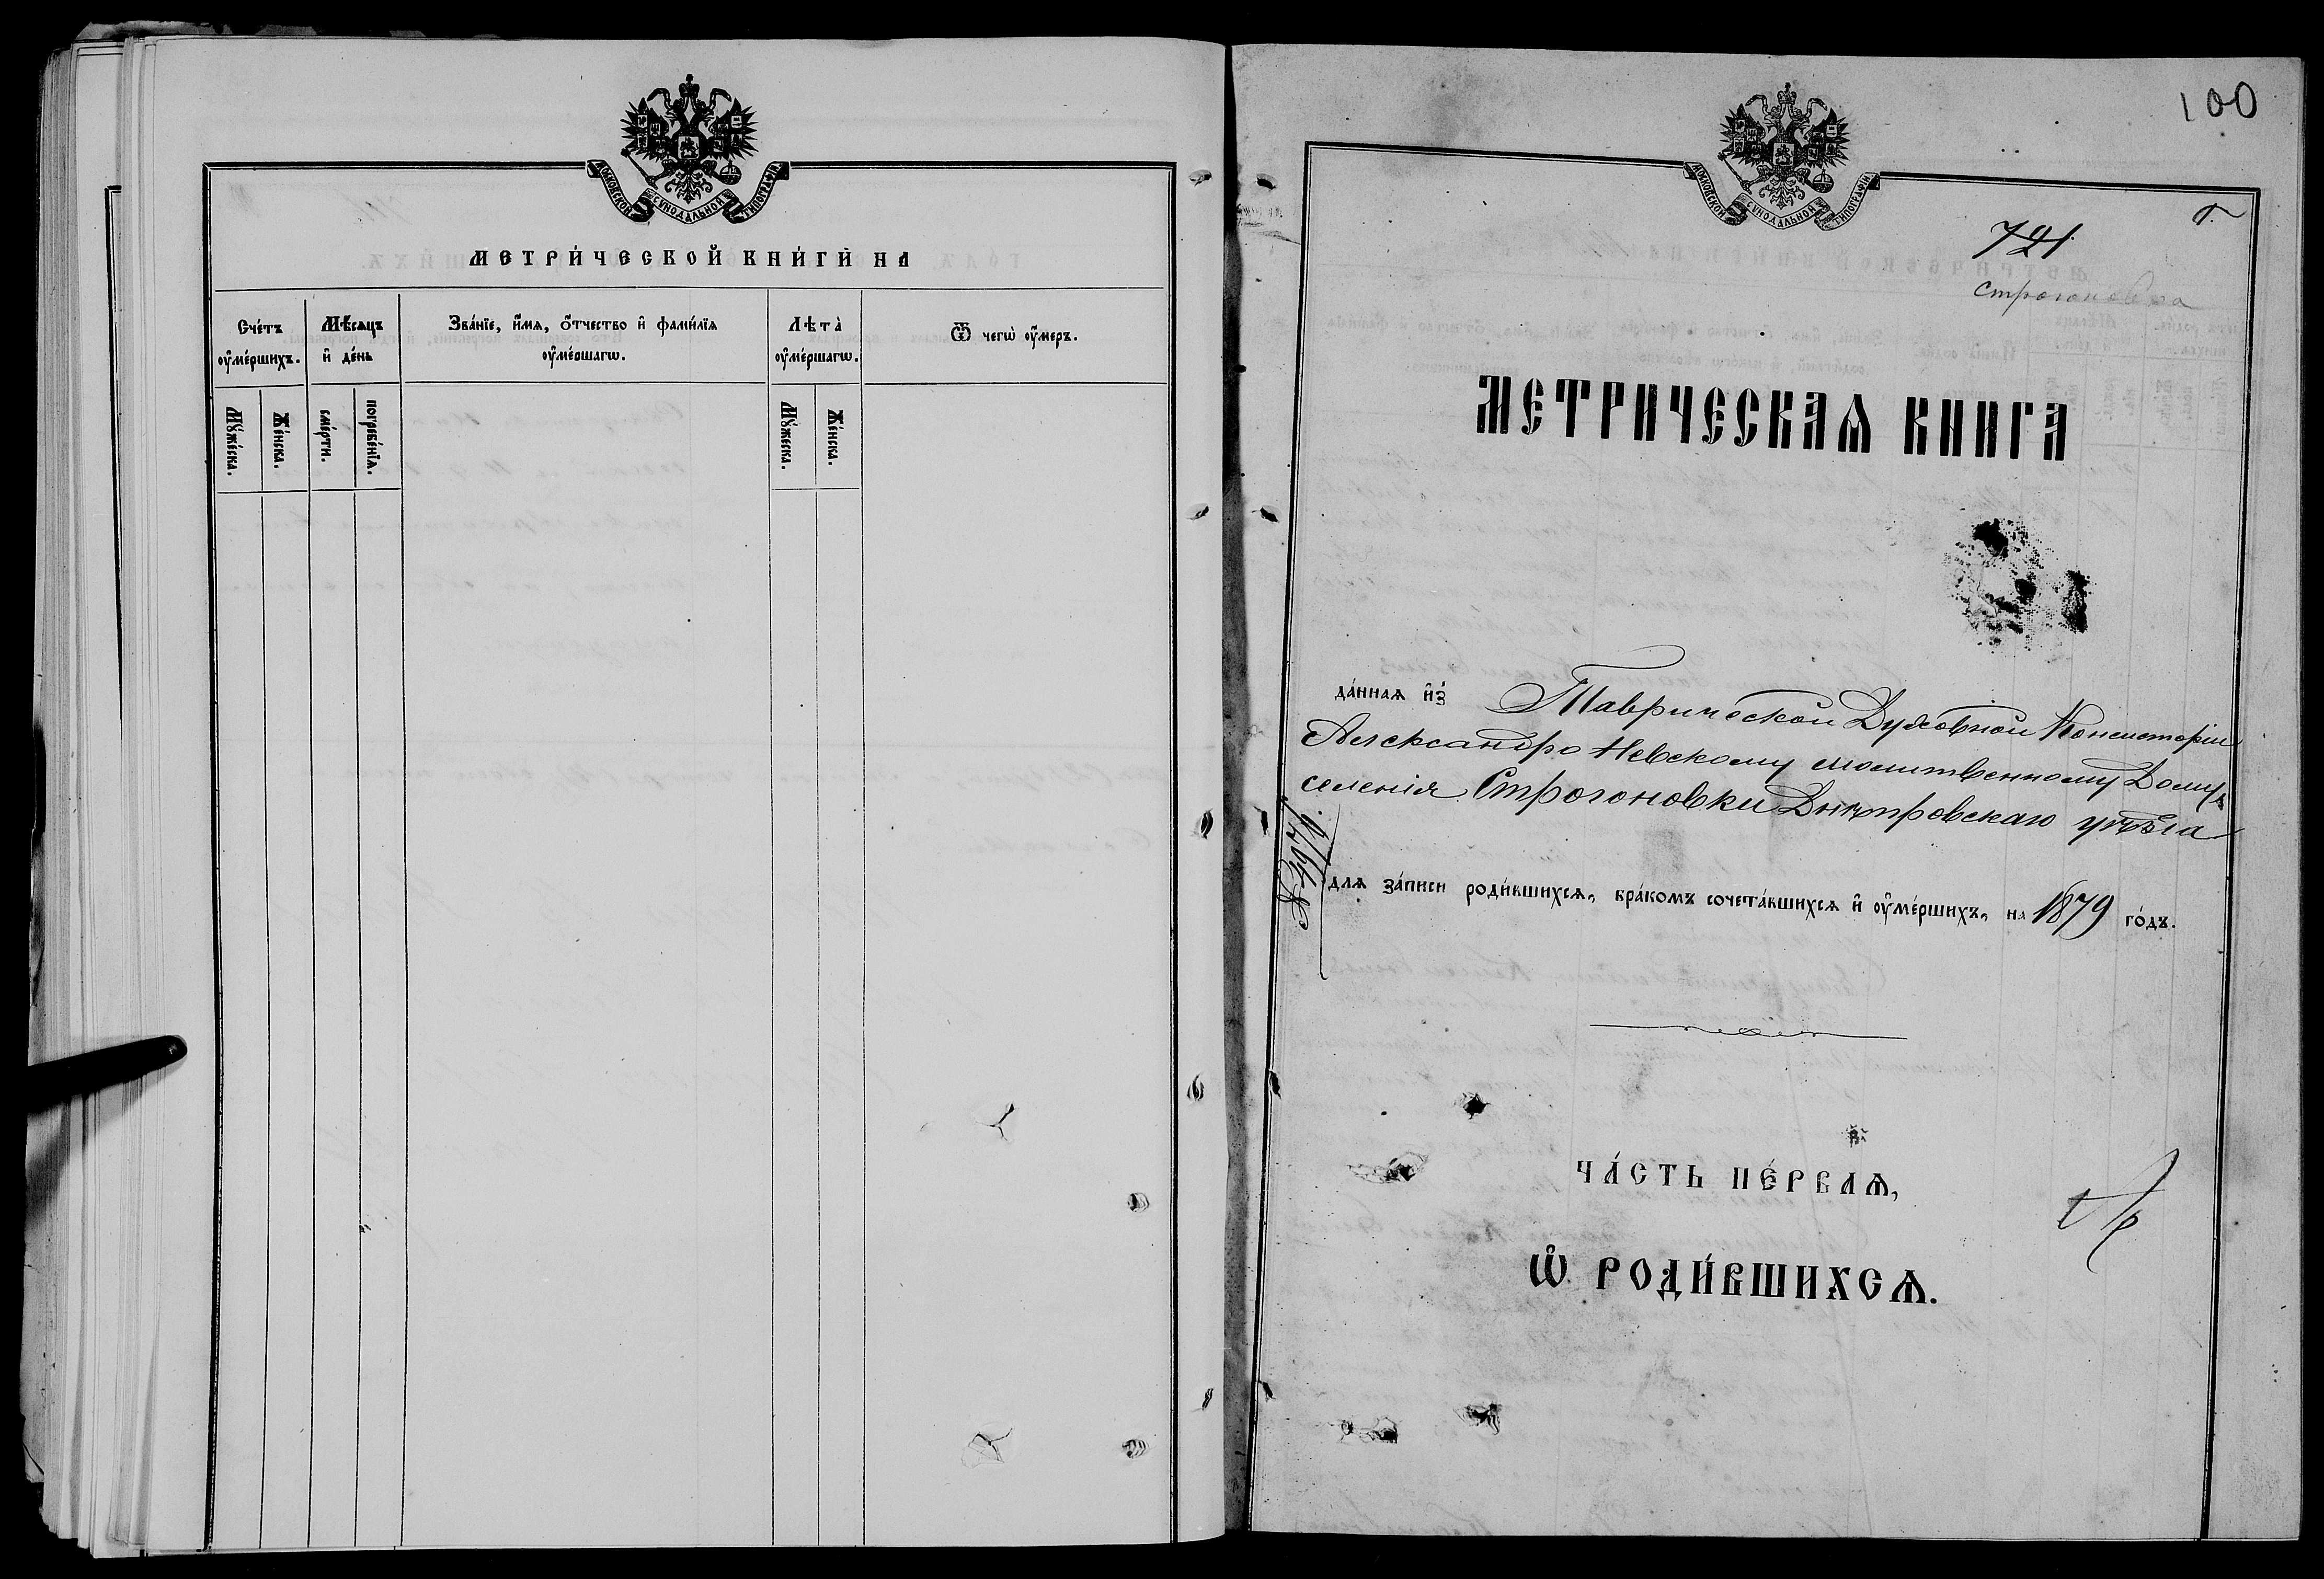 МОСКОВСКОЙ СѴНОДАЛЬНОЙ ТИПОГРАФІИ
МЕТРИ́ЧЕСКОЙ КНИ́ГИ НА
Сче́тъ ᲂу҆ме́ршихъ.
Мѣ́сѧцъ и҆ де́нь
Зва́нїе, и҆́мѧ, ѻ҆́тчество и҆ фами́лїѧ ᲂу҆ме́ршагѡ.
Лѣта̀ ᲂу҆ме́ршагѡ.
Ѿ чегѡ̀ ᲂу҆́меръ.
Мꙋ́жеска.
Же́нска.
сме́рти.
погребе́нїѧ.
Мꙋ́жеска.
Же́нска.
100
МОСКОВСКОЙ СѴНОДАЛЬНОЙ ТИПОГРАФІИ
721
Строгоновка
МЕТРИЧЕСКАѦ КНИГА
да́ннаѧ и҆з̾ Таврической Духовной Консисторіи
Александро Невскому молитвенному Дому
селенія Строгоновки Днѣпровскаго уѣзда
для за́писи роди́вшихсѧ, бра́комъ сочета́вшихсѧ и҆ ᲂу҆ме́ршихъ, на 1879 го́дъ.
№ 4971
ЧА́СТЬ ПЕ́РВАѦ,
Ѡ҆ РОДИ́ВШИХСѦ.